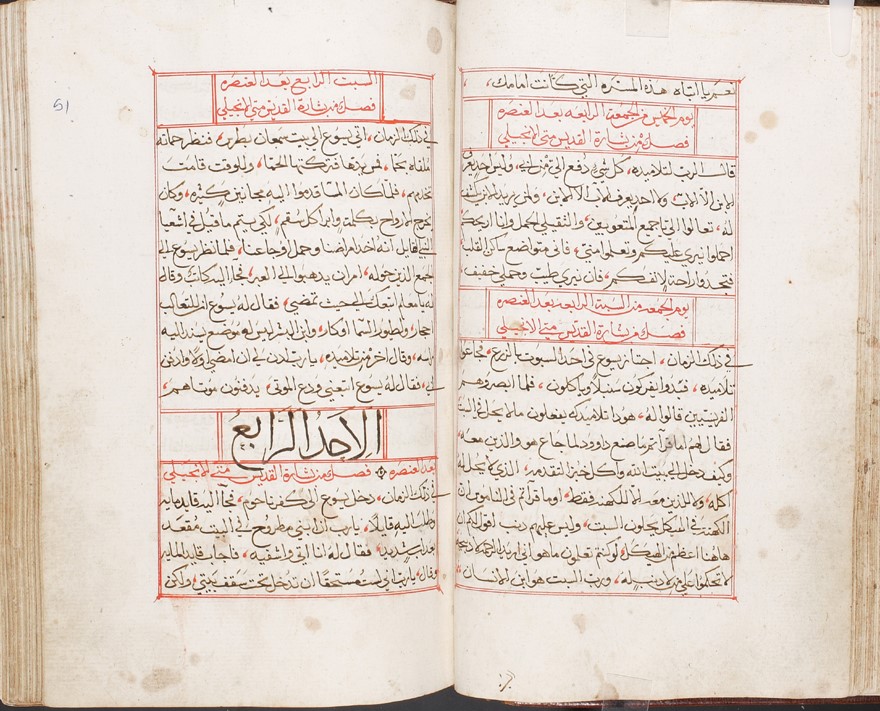 نعم يا ابتاه هذه المسره التي كانت امامك
يوم الخميس من الجمعه الرابعه بعد العنصره
فصل من بشارة القديس متى الانجيلي
قال الرب لتلاميذه، كل شي دفع الي من ابي، وليس احد يعرف
الابن الا الاب، ولا احد يعرف الاب الا الابن، ولمن يريد الابن ان
له، تعالوا الي يا جميع المتعوبين، والثقيلي الحمل وانا اريحكم
احملوا نيري عليكم وتعلموا مني، فاني متواضع ساكن القلب،
فتجدوا راحة لانفسكم، فان نيري طيب وحملي خفيف،
يوم الجمعه من السبة الرابعه بعد العنصره
فصل من بشارة القديس متى الانجيلي
في ذلك الزمان، اجتاز يسوع في احد السبوت بالزرع، فجاعوا
تلاميذه، فبدوا يفركون سنبلا وياكلون، فلما ابصروهم
الفريسيين قالوا له، هودا تلاميذك يفعلون ما لا يحل في السبت
فقال لهم اما قراتم ما صنع داوود لما جاع هو والذين معه،
وكيف دخل الى بيت الله واكل خبز التقدمه، الذي لا يحل له
اكله، ولا للذين معه الا للكهنه فقط، او ما قراتم في الناموس ان
الكهنة في الهيكل يحلون السبت، وليس عليهم ذنب اقول لكم ان
هاهنا اعظم من الهيكل، لو كنتم تعلمون ما هو اني اريد الرحمه لا ذبيحه
لا تحكموا على من لا ذنب له، ورب السبت هو ابن الانسان،
51
السبت الرابع بعد العنصره
فصل من بشارة القديس متى الانجيلي
في ذلك الزمان، اتي يسوع الي بيت سمعان بطرس، فنظر حماته
ملقاه بحما، فمس يدها فتركتها الحما، وللوقت قامت
تخدمهم، فلما كان المسا قدموا اليه مجانين كثيره، وكان
يخرج الارواح بكلمة، وابرا كل سقم، لكي يتم ما قيل في اشعيا
النبي القايل، انه اخذ امراضنا وحمل اوجاعنا، فلما نظر يسوع الى
الجمع الذين حوله، امر ان يدهبوا الى العبر، فجا اليه كاتب وقال
له يا معلم اتبعك الي حيث تمضي، فقال له يسوع ان للتعالب
احجار، ولطيور السما اوكار، وابن البشر ليس له موضع يسند اليه
راسه، وقال اخر من تلاميذه، يا رب ادن لي ان امضي اولا وادفن
ابي، فقال له يسوع اتبعني ودع الموتى يدفنون موتاهم،
الاحد الرابع
بعد العنصره فصل من بشارة القديس متى الانجيلي
في ذلك الزمان، دخل يسوع الى كفرناحوم، فجا اليه قايد مايه
وطلب اليه قايلا، يا رب ان ابني مطروح في البيت مقعد
بعذاب شديد، فقال له انا اتي واشفيه، فاجاب قايد المايه
وقال، يا رب اني لست مستحقا ان تدخل تحت سقف بيتي، ولكن